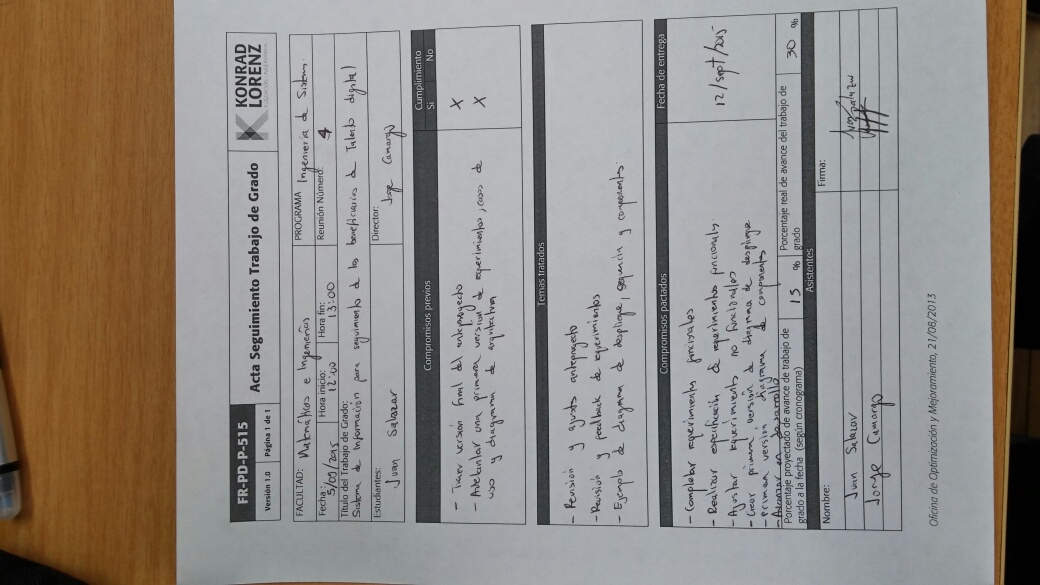 FR-PD-P-515
Versión 1.0 Página 1 de 1
Acta Seguimiento Trabajo de Grado
KONRAD
LORENZ
FACULTAD: Matemáticas e Ingenierías
PROGRAMA Ingeniería de Sistem.
Fecha: 5/09/2015 Hora inicio: 12:00 Hora fin: 13:00 Reunión Número: 4
Título del Trabajo de Grado:
Sistema de Información para seguimiento de los beneficiarios de Talento digital
Estudiantes: Juan Salazar
Director: Jorge Camargo
Compromisos previos
Cumplimiento
Si No
- Traer versión final del anteproyecto X
- Adelantar una primera versión de requerimientos, casos de X
uso y diagrama de arquitectura
Temas tratados
- Revisión y ajuste anteproyecto
- Revisión y feedback de requerimientos
- Ejemplo de diagrama de despliegue, sequencia y componentes
Compromisos pactados
Fecha de entrega
- Completar requerimientos funcionales
- Realizar especificación de requerimientos funcionales
- Ajustar requerimientos no funcionales
- Crear primera versión de diagrama de despliegue
- Primera versión diagrama de componentes
- Avanzar en desarrollo
12/sept/2015
Porcentaje proyectado de avance de trabajo de
grado a la fecha (según cronograma) 15 %
Porcentaje real de avance del trabajo de
grado 30 %
Asistentes
Nombre: Firma:
Juan Salazar Juan Salazar
Jorge Camargo
Oficina de Optimización y Mejoramiento, 21/08/2013